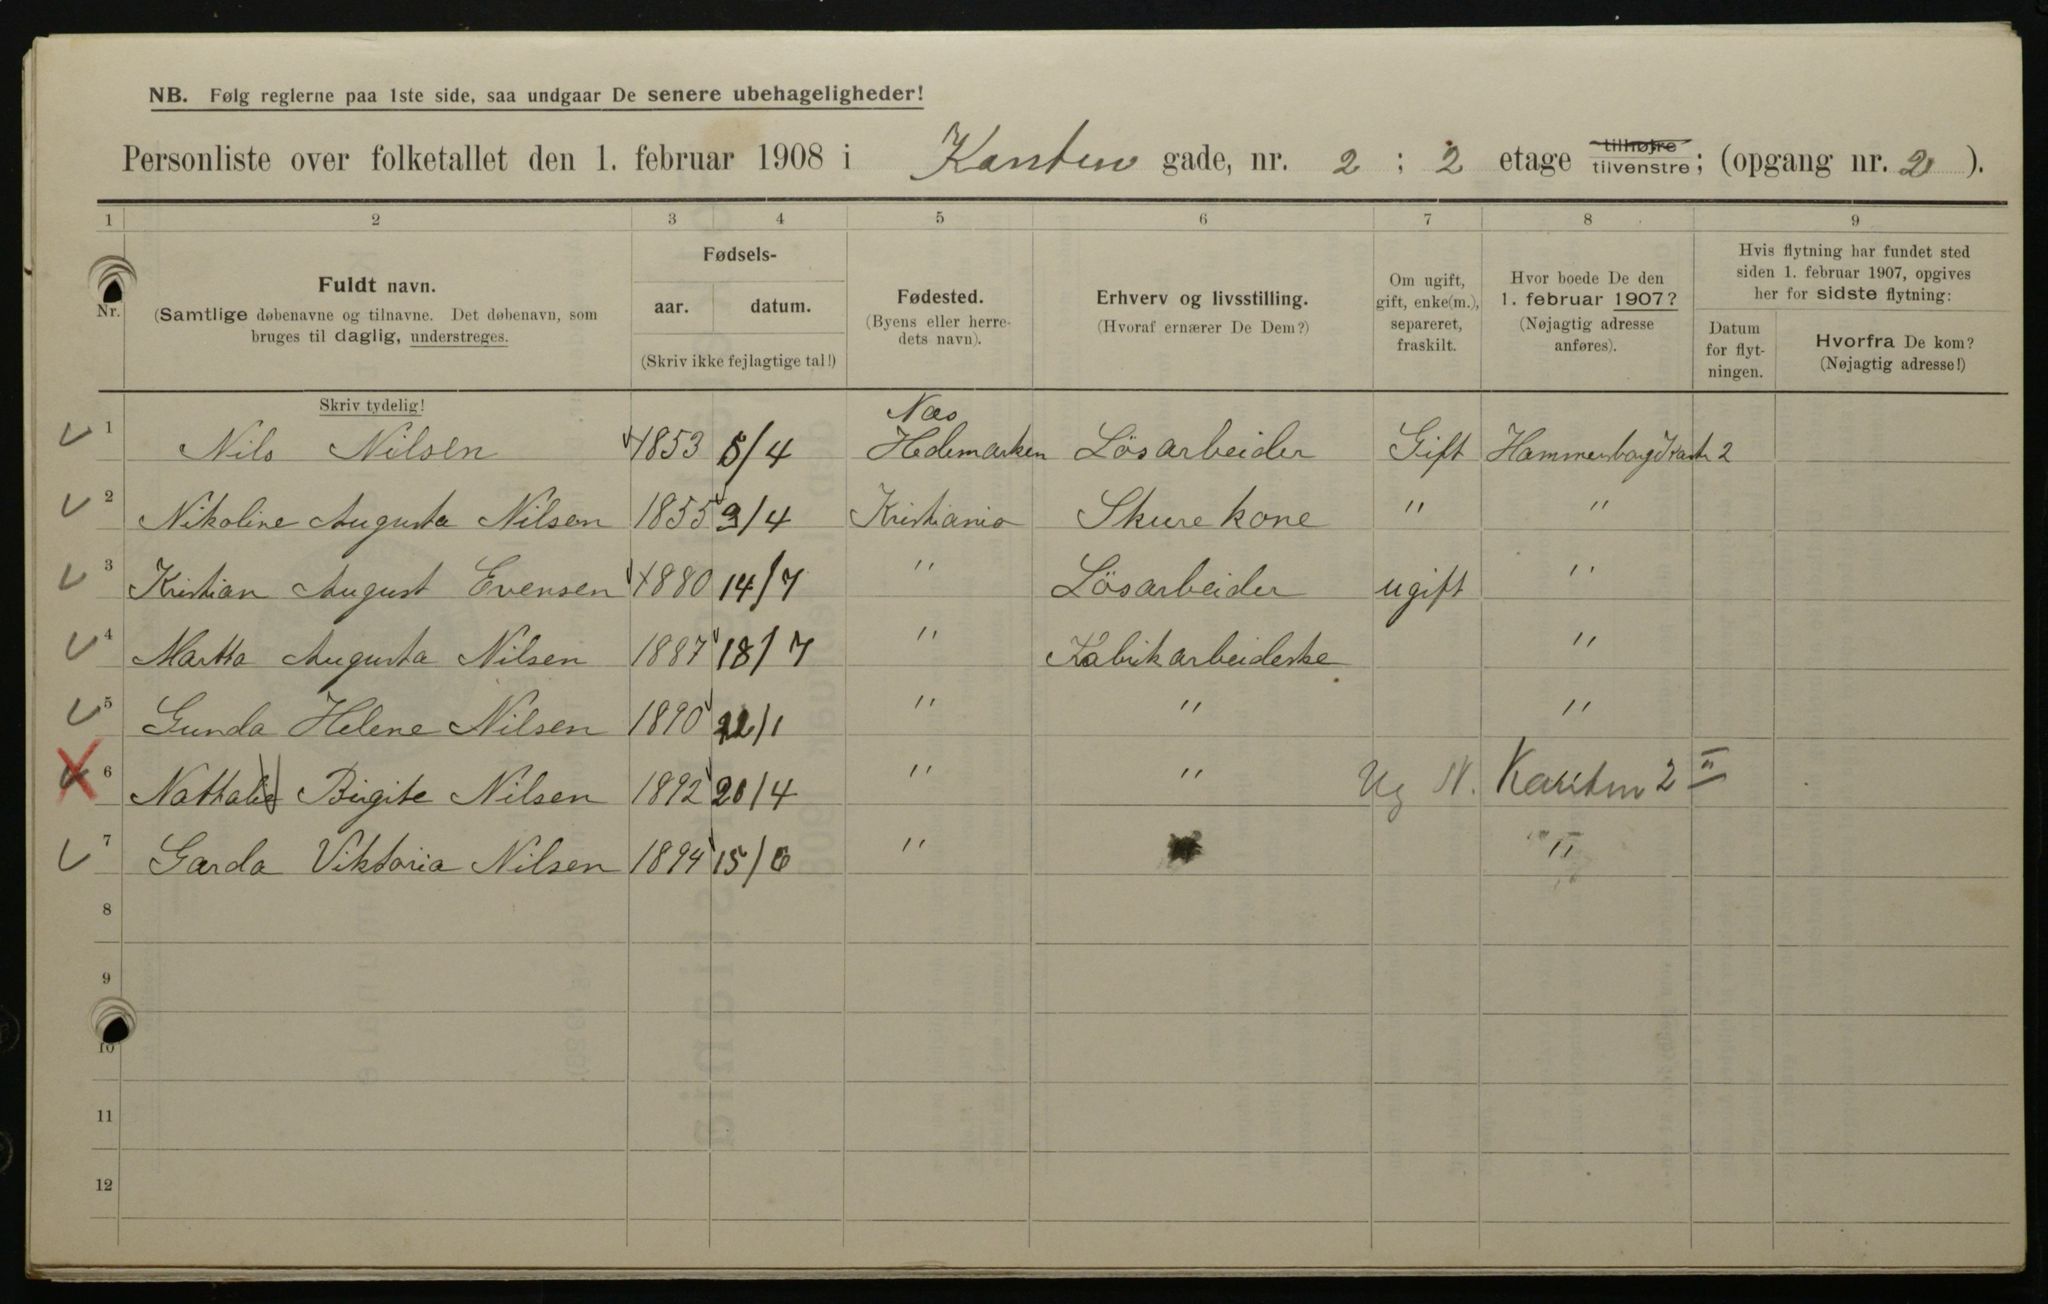 NB. Følg reglerne paa 1ste side, saa undgaar De senere ubehageligheder!
Personliste over folketallet den 1. februar 1908 i Kanten gade, nr. 2 ; 2 etage tilhøjre tilvenstre; (opgang nr. 2 ).
1 2 3 4 5 6 7 8 9
Nr.
Fuldt navn.
(Samtlige døbenavne og tilnavne. Det døbenavn, som
bruges til daglig, understreges.
Fødsels-
aar. datum.
(Skriv ikke fejlagtige tal!)
Fødested.
(Byens eller herre-
dets navn).
Erhverv og livsstilling.
(Hvoraf ernærer De Dem?)
Om ugift,
gift, enke(m.),
separeret,
fraskilt.
Hvor boede De den
1. februar 1907?
(Nøjagtig adresse
anføres).
Hvis flytning har fundet sted
siden 1. februar 1907, opgives
her for sidste flytning:
Datum
for flyt-
ningen.
Hvorfra De kom?
(Nøjagtig adresse!)
Skriv tydelig!
Næs
1 Nils Nilsen 1853 5/4 Hedemarken Lösarbeider Gift 2
2 Nikoline Augusta Nilsen 1855 3/4 Kristiania Skurekone " "
3 Kristian August Evensen 1880 14/7 " Lösarbeider ugift "
4 Martha Augusta Nilsen 1887 18/7 " Fabrikarbeiderske "
5 Gunda Helene Nilsen 1890 22/1 " " "
6 Nathalie Birgite Nilsen 1892 20/4 " " Ug N. Kanten 2 II
7 Garda Viktoria Nilsen 1894 15/6 " "
8
9
10
11
12